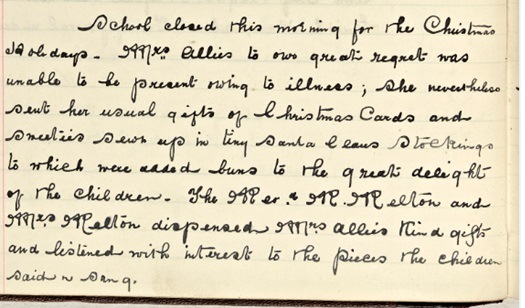 School closed this morning for the Christmas
Holidays. Mrs Allies to our great regret was
unable to be present owing to illness; she nevertheless
sent her usual gifts of Christmas Cards and
sweeties sewn up in tiny Santa Claus Stockings
to which were added buns to the great delight
of the children. The Rev. R. Melton and
Mrs Melton dispensed Mrs Allies kind gifts
and listened with interest to the pieces the children
said & sang.